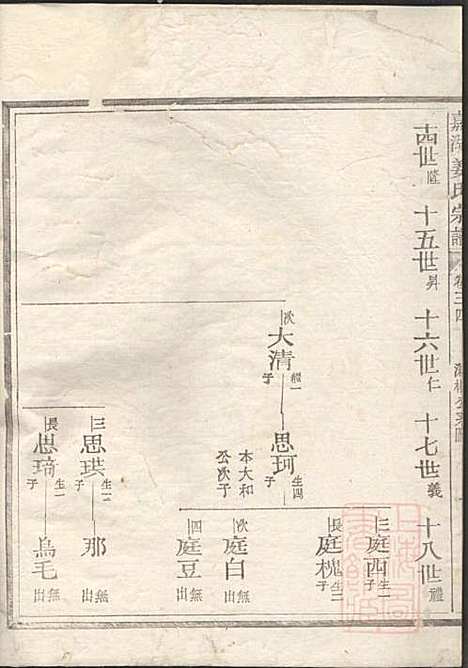 嘉湖姜氏宗譜 卷三四
十四世隆 十五世昇 十六世仁 十七世義 十八世禮
次 大清 繼一子
思珂 生四子
本大和公次子
三 庭西 生一子
長 庭槐 生二子
次 庭白 無出
四 庭豆 無出
三 思琪 生一子
那 無出
長 思琦 生一子
烏毛 無出